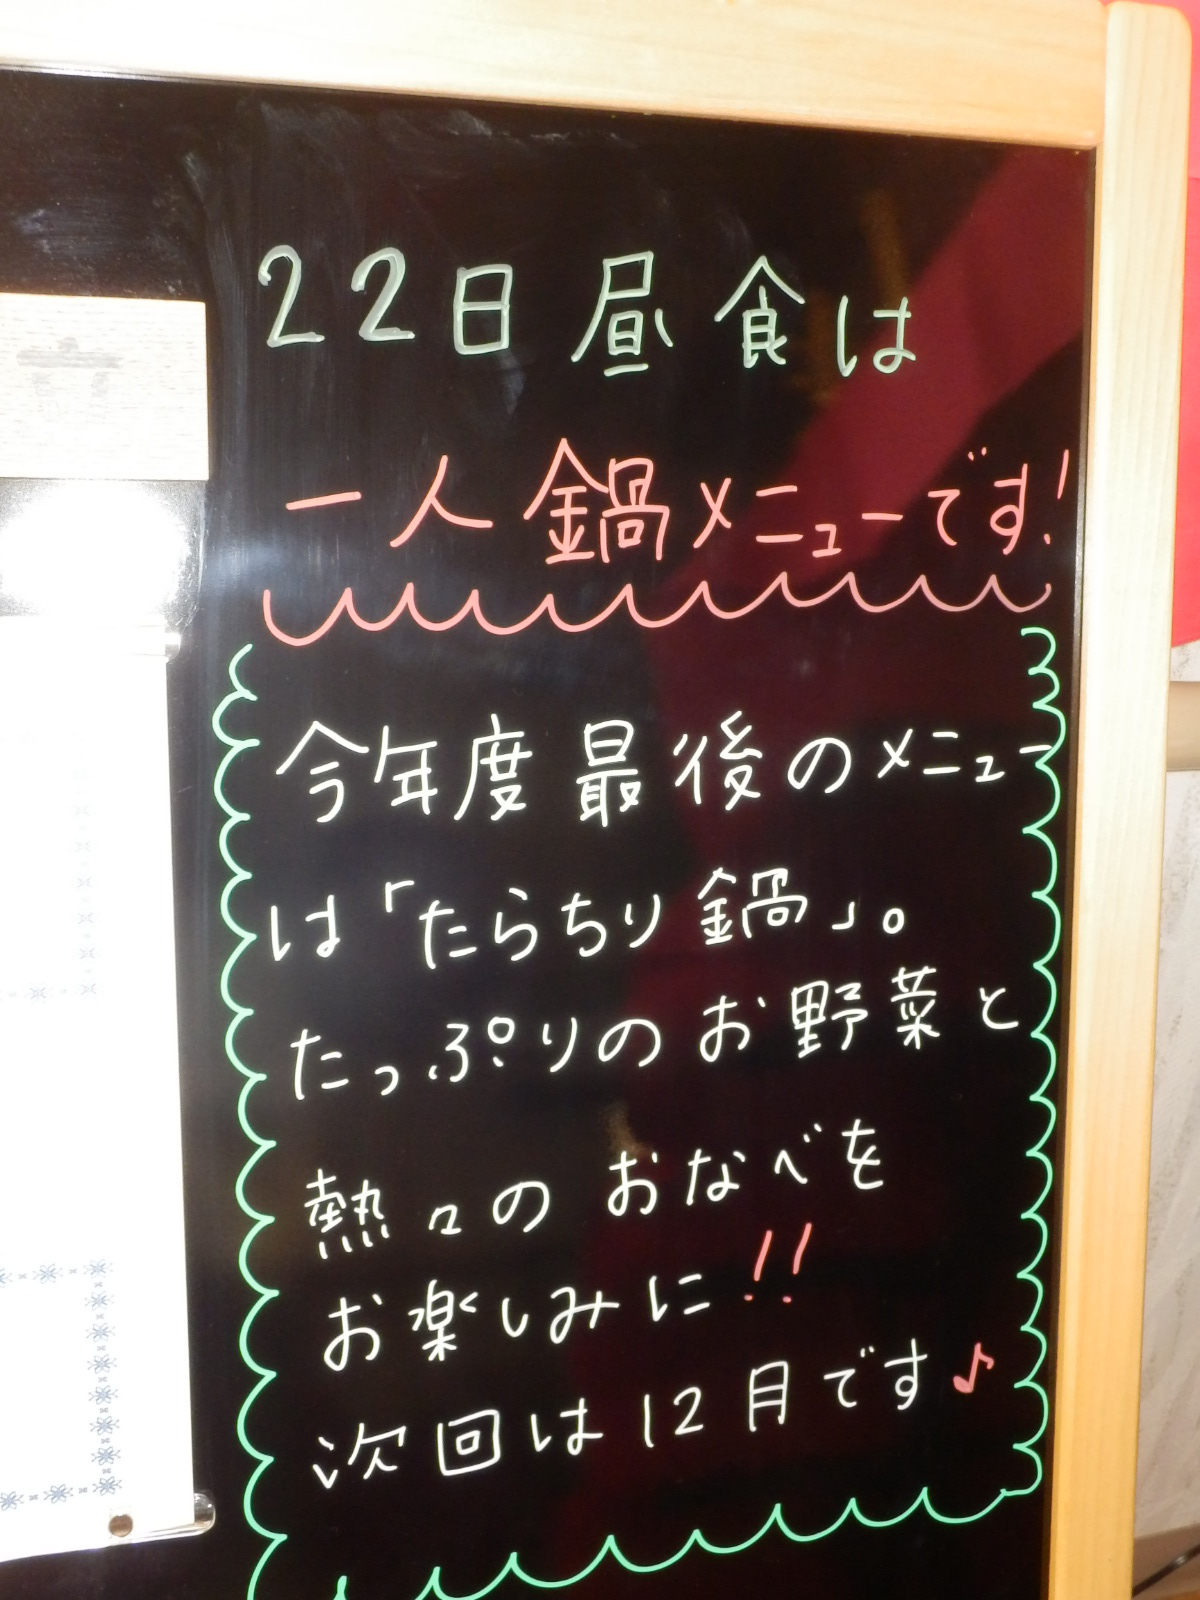 22日昼食は
一人鍋メニューです!
今年度最後のメニュー
は「たらちり鍋」。
たっぷりのお野菜と
熱々のおなべを
お楽しみに!!
次回は12月です♪